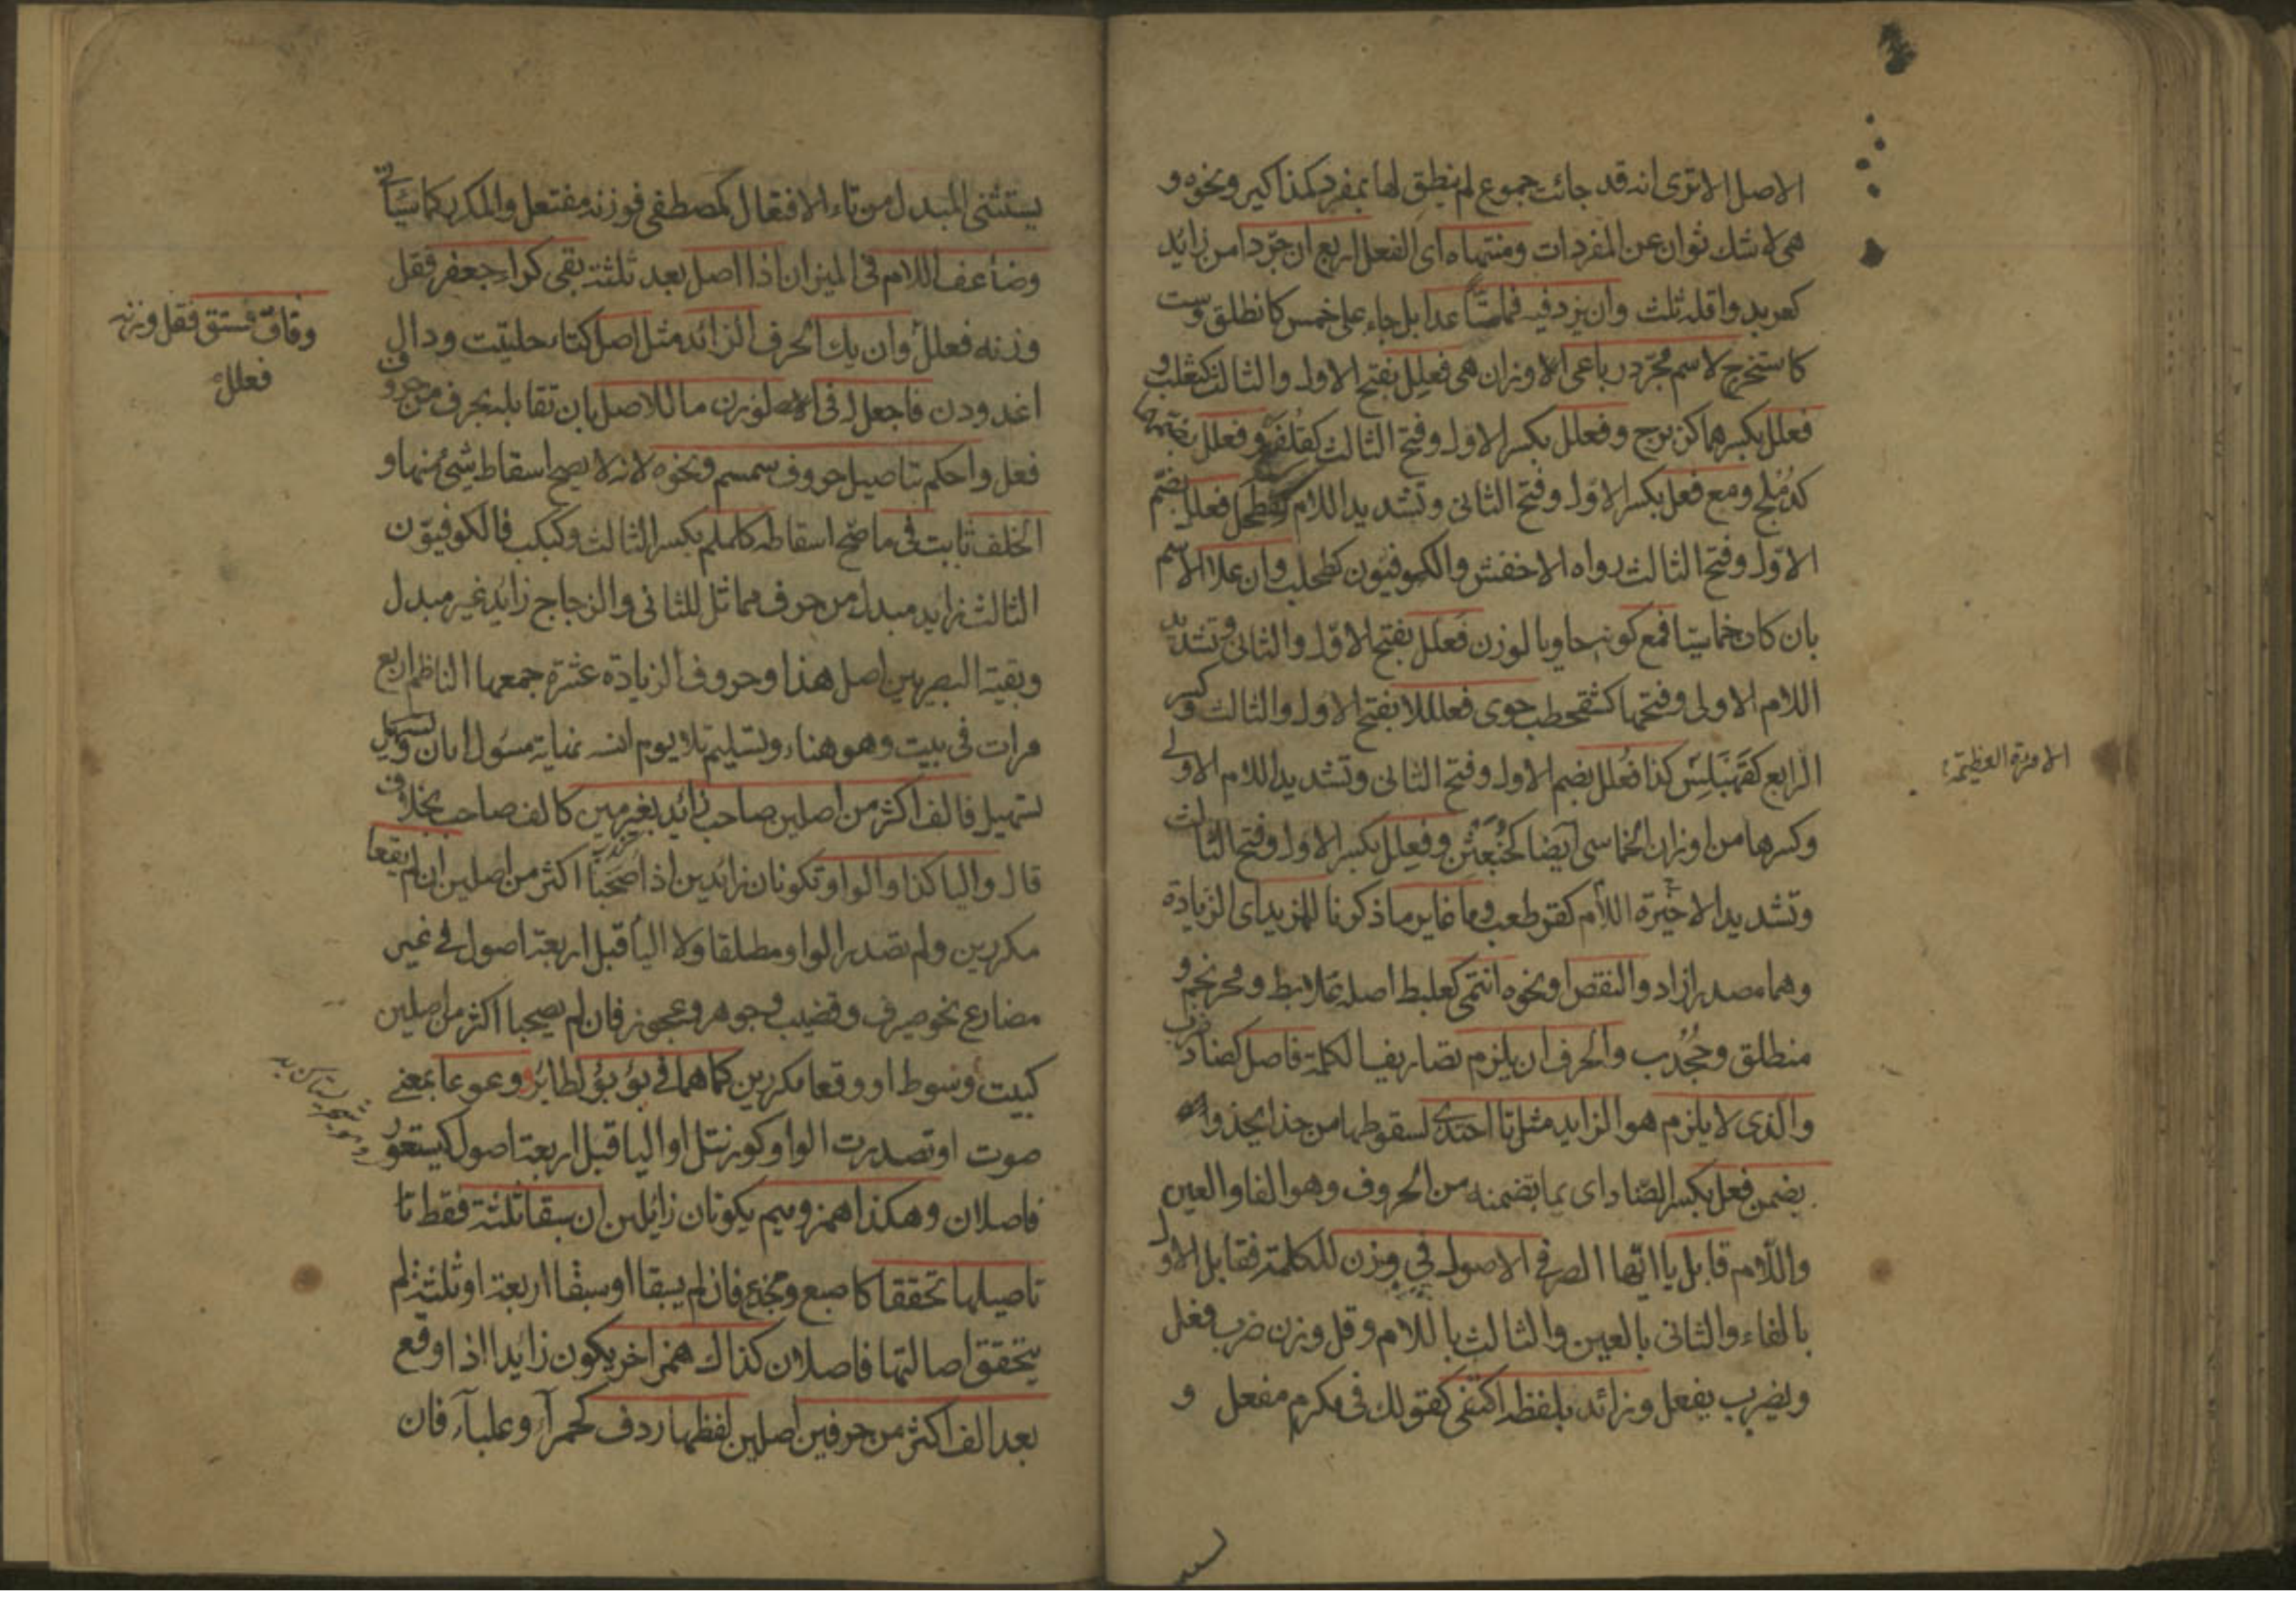 الاصل الا ترى انه قد جائت جموع لم ينطق لها بمفرد كمذاكير ونحوه و
هى لا شك ثوان عن المفردات ومنتهاه اى الفعل اربع ان جردا من زائد
كعربد واقله ثلث وان يزد فيه فما ستا عدا بل جاء على خمس كانطلق وست
كاستخرج لاسم مجرد رباعى الاوزان هى فعلل بفتح الاول والثالث كثعلب و
فعلل بكسرهما كزبرج وفعلل بكسر الاول وفتح الثالث كقلفع وفعلل بضمهما
كدملج ومع فعل بكسر الاول وفتح الثانى وتشديد اللام كقطحل فعلل بضم
الاول وفتح الثالث رواه الاخفش والكوفيون كطحلب وان علا الاسم
بان كان خماسيا فمع كونه حاويا لوزن فعلل بفتح الاول والثانى وتشديد
اللام الاولى وفتحها كشقحطب حوى فعلللا بفتح الاول والثالث وكسر
الرابع كقهبلس كذا فعلل بضم الاول وفتح الثانى وتشديد اللام الاولى
وكسرها من اوزان الخماسى ايضا كخبعثن وفعلل بكسر الاول وفتح الثالث
وتشديد الاخيرة اللام كقرطعب وما غاير ما ذكرنا للمزيد اى الزيادة
وهما مصدرا زاد والنقص او نحوه انتمى كعلبط اصله علابط ومحرنجم و
منطلق وجخدب والحرف ان يلزم تصاريف الكلمة فاصل كضاد ضرب
والذى لا يلزم هو الزايد مثل تا احتذى لسقوطها من حذا يحذو
بضمن فعل بكسر الضاد اى بما تضمنه من الحروف وهو الفا والعين
واللام قابل يا ايها الصرفى الاصول فى وزن للكلمة فقابل الاول
بالفاء والثانى بالعين والثالث باللام وقل وزن ضرب فعل
ويضرب يفعل وزائد بلفظه اكتفى كقولك فى مكرم مفعل و
الامرة العظيمة
يستثنى المبدل من تاء الافتعال كمصطفى فوزنه مفتعل والمكرر كما سيأتى
وضاعف اللام فى الميزان اذا اصل بعد ثلثة بقى كراء جعفر فقل
وزنه فعلل وان يك الحرف الزائد مثل اصل كتاء حلتيت ودال
اغدودن فاجعل له فى الوزن ما للاصل بان تقابله بحرف من حروف
فعل واحكم بتاصيل حروف سمسم ونحوه لانه لا يصح اسقاط شئ منها و
الخلف ثابت فى ما صح اسقاطه كلملم بكسر الثالث وكبكب فالكوفيون
الثالث زايد مبدل من حرف مماثل للثانى والزجاج زايد غير مبدل
وبقية البصريين اصل هذا وحروف الزيادة عشرة جمعها الناظم اربع
مرات فى بيت وهو هناء وتسليم تلا يوم انسه نهاية مسؤل امان وتسهيل
تسهيل فالف اكثر من اصلين صاحب زائد بغير مين كالف صاحب بخلاف
قال واليا كذا والواو تكونان زائدين اذا صحبا اكثر من اصلين ان لم يقعا
مكررين ولم تصدر الواو مطلقا ولا اليا قبل اربعة اصول فى غير
مضارع نحو صيرف وقضيب وجوهر وعجوز فان لم يصحبا اكثر من اصلين
كبيت وسوط او وقعا مكررين كما هما فى يؤيؤ لطائر ووعوعا بمعنى
صوت او تصدرت الواو كورنتل او اليا قبل اربعة اصول كيستعور
فاصلان وهكذا همز وميم يكونان زائلين ان سبقا ثلثة فقط تا
تاصيلها تحققا كاصبع ومخدع فان لم يسبقا او سبقا اربعة او ثلثة لم
يتحقق اصالتها فاصلان كذاك همز اخر يكون زايدا اذا وقع
بعد الف اكثر من حرفين اصلين لفظها ردف كحمرآء وعلبآء فان
وقاف فستق فقل وزنه
فعلل